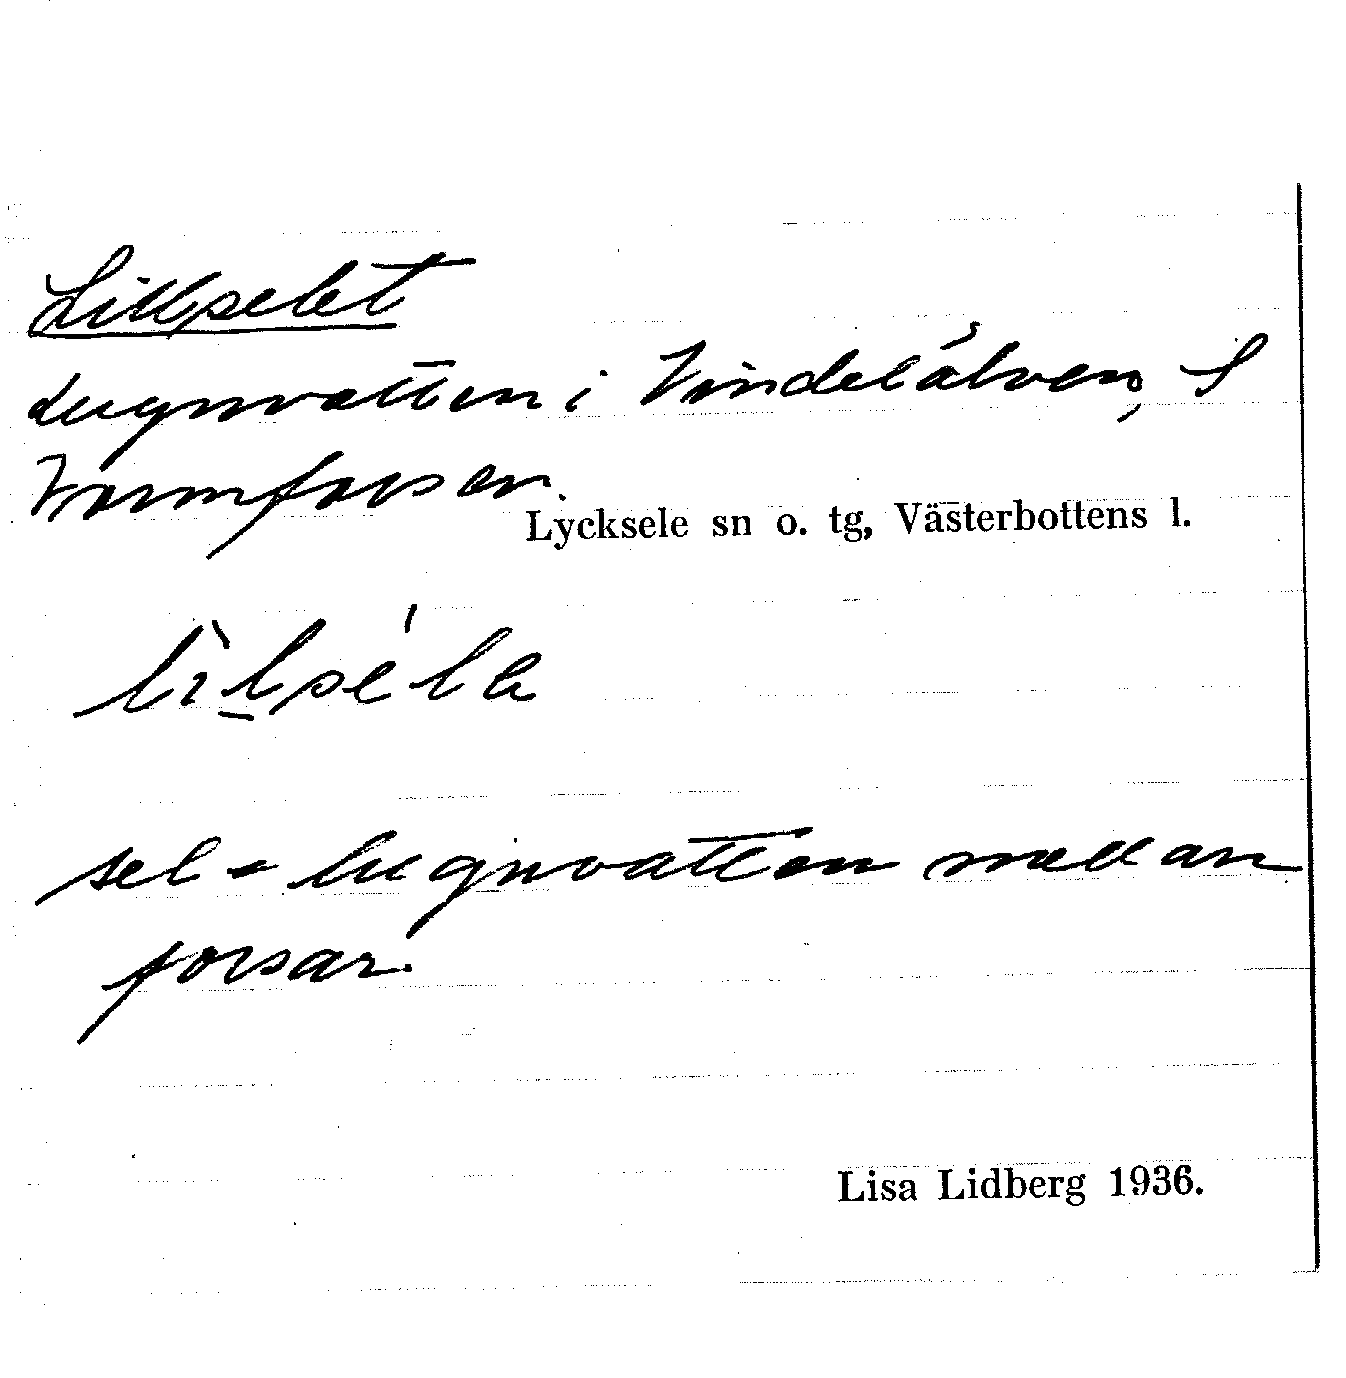 Lillselet
Lugnvatten i Vindelälven, S
Varmforsen.
Lycksele sn o. tg, Västerbottens l.
sel = lugnvatten mellan
forsar.
Lisa Lidberg 1936.